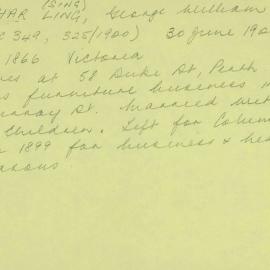 (SING)
HAR LING, George William
C 349, 325 (1900) 30 June 190
1866 Victoria
es at 58 Duke St, Perth
s furniture business
Murray St. Married with
children. Left for
1899 for business & hea
asons.